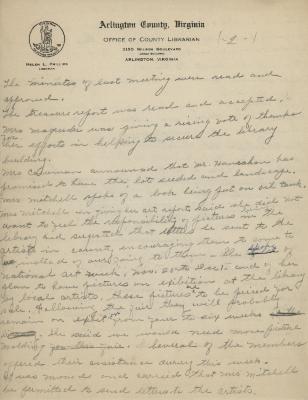 Arlington County, Virginia
OFFICE OF COUNTY LIBRARIAN
HELEN L. PHILLIPS
LIBRARIAN
ARLINGTON, VIRGINIA
The minutes of last meeting were read and
approved.
The treasure report was read and accepted.
Mrs was giving a rising vote of thanks
for her efforts in helping to secure the library
building.
Mrs announced that Mr.
promised to have the lot seeded and landscape.
Mrs Mitchell spoke of a book being put on
Mrs Mitchell in her art report said she did not
want to feel the responsibility of pictures in the
library and suggested that be sent to the
artists in county, encouraging them to
instead of our going to them - The of
national art week, Nov. to Dec. and of her
plans to have pictures on exhibition at the library
by local artists, these pictures to be priced for
sale. Following the fair they will probably
remain on exhibit from four to six weeks
She said we would need more picture
molding. Several of the members
offered their assistance during this week.
It was moved and carried that Mrs Mitchell
be permitted to send letters to the artists.